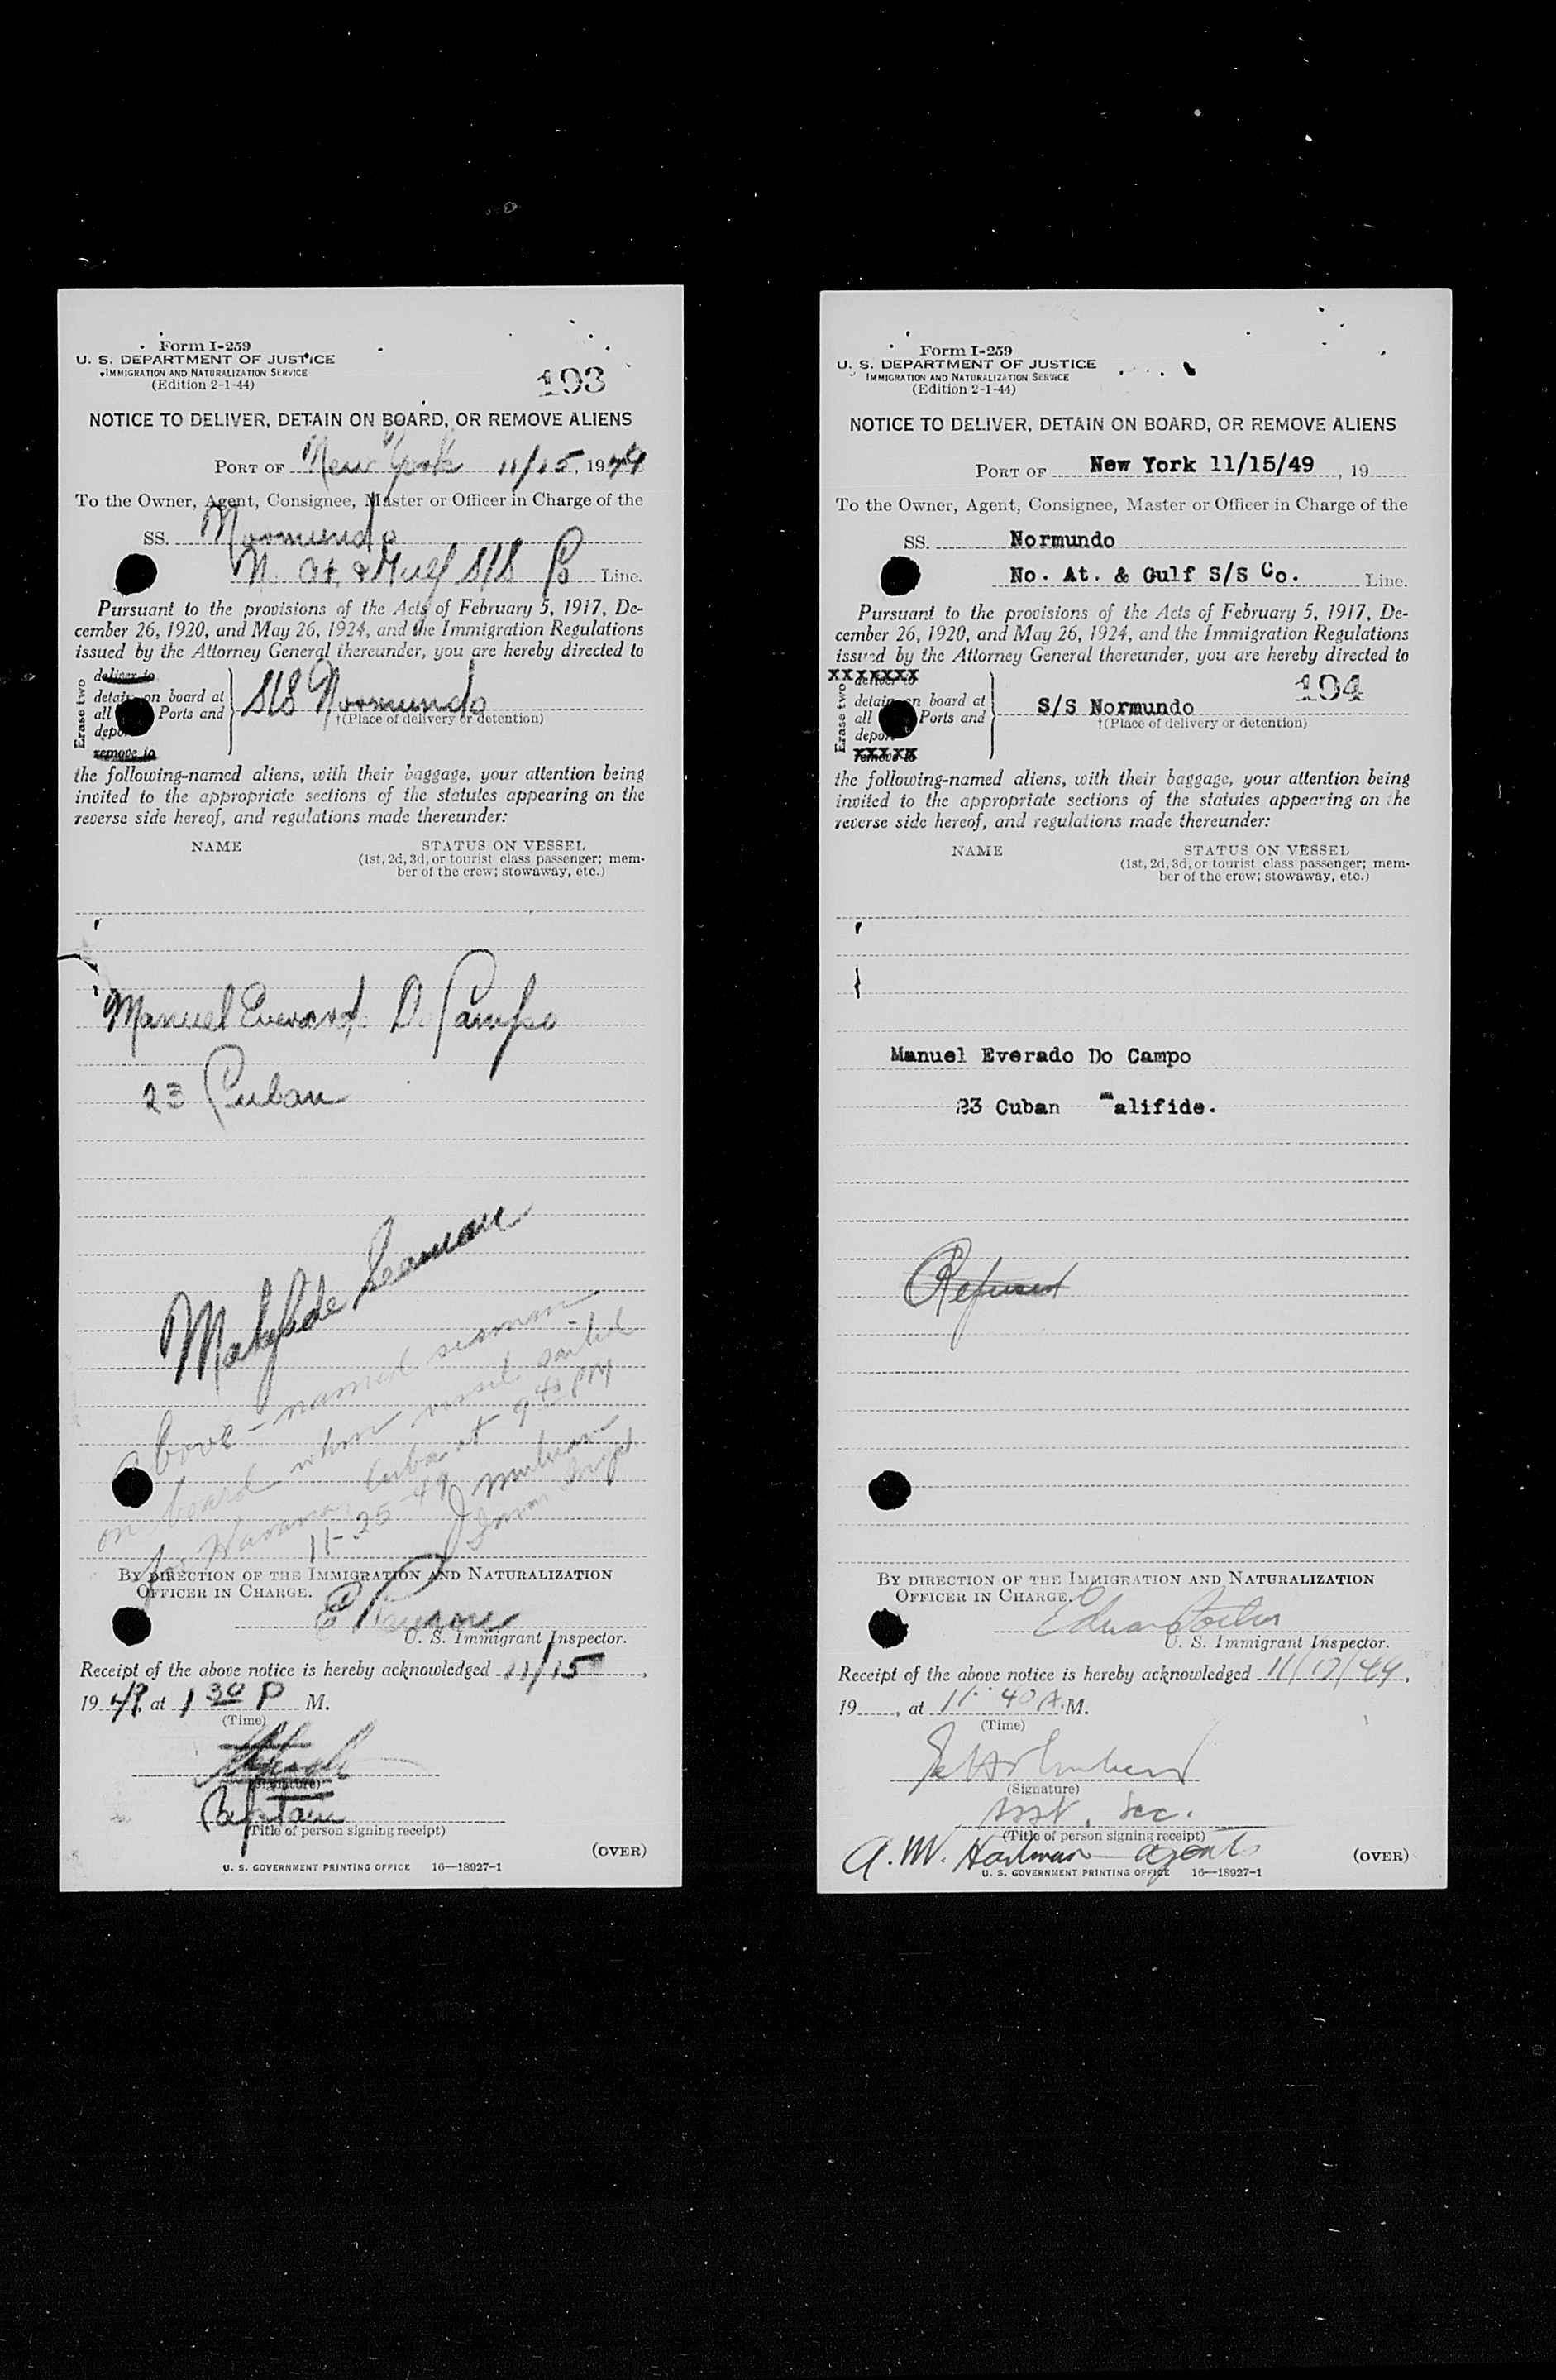 Form I-259
U. S. DEPARTMENT OF JUSTICE
IMMIGRATION AND NATURALIZATION SERVICE
(Edition 2-1-44)
193
NOTICE TO DELIVER, DETAIN ON BOARD, OR REMOVE ALIENS
PORT OF New York 11/15, 1949
To the Owner, Agent, Consignee, Master or Officer in Charge of the
SS. Normundo
N. At. & Gulf S/S Co Line.
Pursuant to the provisions of the Acts of February 5, 1917, De-
cember 26, 1920, and May 26, 1924, and the Immigration Regulations
issued by the Attorney General thereunder, you are hereby directed to
Erase two
deliver to
detain on board at
all Ports and
depo
remove to
S/S Normundo
†(Place of delivery or detention)
the following-named aliens, with their baggage, your attention being
invited to the appropriate sections of the statutes appearing on the
reverse side hereof, and regulations made thereunder:
NAME
STATUS ON VESSEL
(1st, 2d, 3d, or tourist class passenger; mem-
ber of the crew; stowaway, etc.)
Manuel Everardo Do Campo
23 Cuban
Malafide Seaman
above-named seaman
on board when vessel sailed
for Havana, Cuba at 9 40 PM
11-25-49
Immi Inspt.
BY DIRECTION OF THE IMMIGRATION AND NATURALIZATION
OFFICER IN CHARGE.
U. S. Immigrant Inspector.
Receipt of the above notice is hereby acknowledged 11/15,
1949, at 1 30 P M.
(Time)
(Signature)
Captain
(Title of person signing receipt)
(OVER)
U. S. GOVERNMENT PRINTING OFFICE 16—18927-1
Form I-259
U. S. DEPARTMENT OF JUSTICE
IMMIGRATION AND NATURALIZATION SERVICE
(Edition 2-1-44)
NOTICE TO DELIVER, DETAIN ON BOARD, OR REMOVE ALIENS
PORT OF New York 11/15/49, 19
To the Owner, Agent, Consignee, Master or Officer in Charge of the
SS. Normundo
No. At. & Gulf S/S Co. Line.
Pursuant to the provisions of the Acts of February 5, 1917, De-
cember 26, 1920, and May 26, 1924, and the Immigration Regulations
issued by the Attorney General thereunder, you are hereby directed to
Erase two
XXXXXXX
deliver to
detain on board at
all Ports and
depor
XXXXX
remove to
S/S Normundo
194
†(Place of delivery or detention)
the following-named aliens, with their baggage, your attention being
invited to the appropriate sections of the statutes appearing on the
reverse side hereof, and regulations made thereunder:
NAME
STATUS ON VESSEL
(1st, 2d, 3d, or tourist class passenger; mem-
ber of the crew; stowaway, etc.)
Manuel Everado Do Campo
23 Cuban Malifide.
Refused
BY DIRECTION OF THE IMMIGRATION AND NATURALIZATION
OFFICER IN CHARGE.
U. S. Immigrant Inspector.
Receipt of the above notice is hereby acknowledged 11/17/49,
19, at 11:40 A.M.
(Time)
(Signature)
Asst. Sec.
(Title of person signing receipt)
A. W. Hartman agents
(OVER)
U. S. GOVERNMENT PRINTING OFFICE 16—18927-1